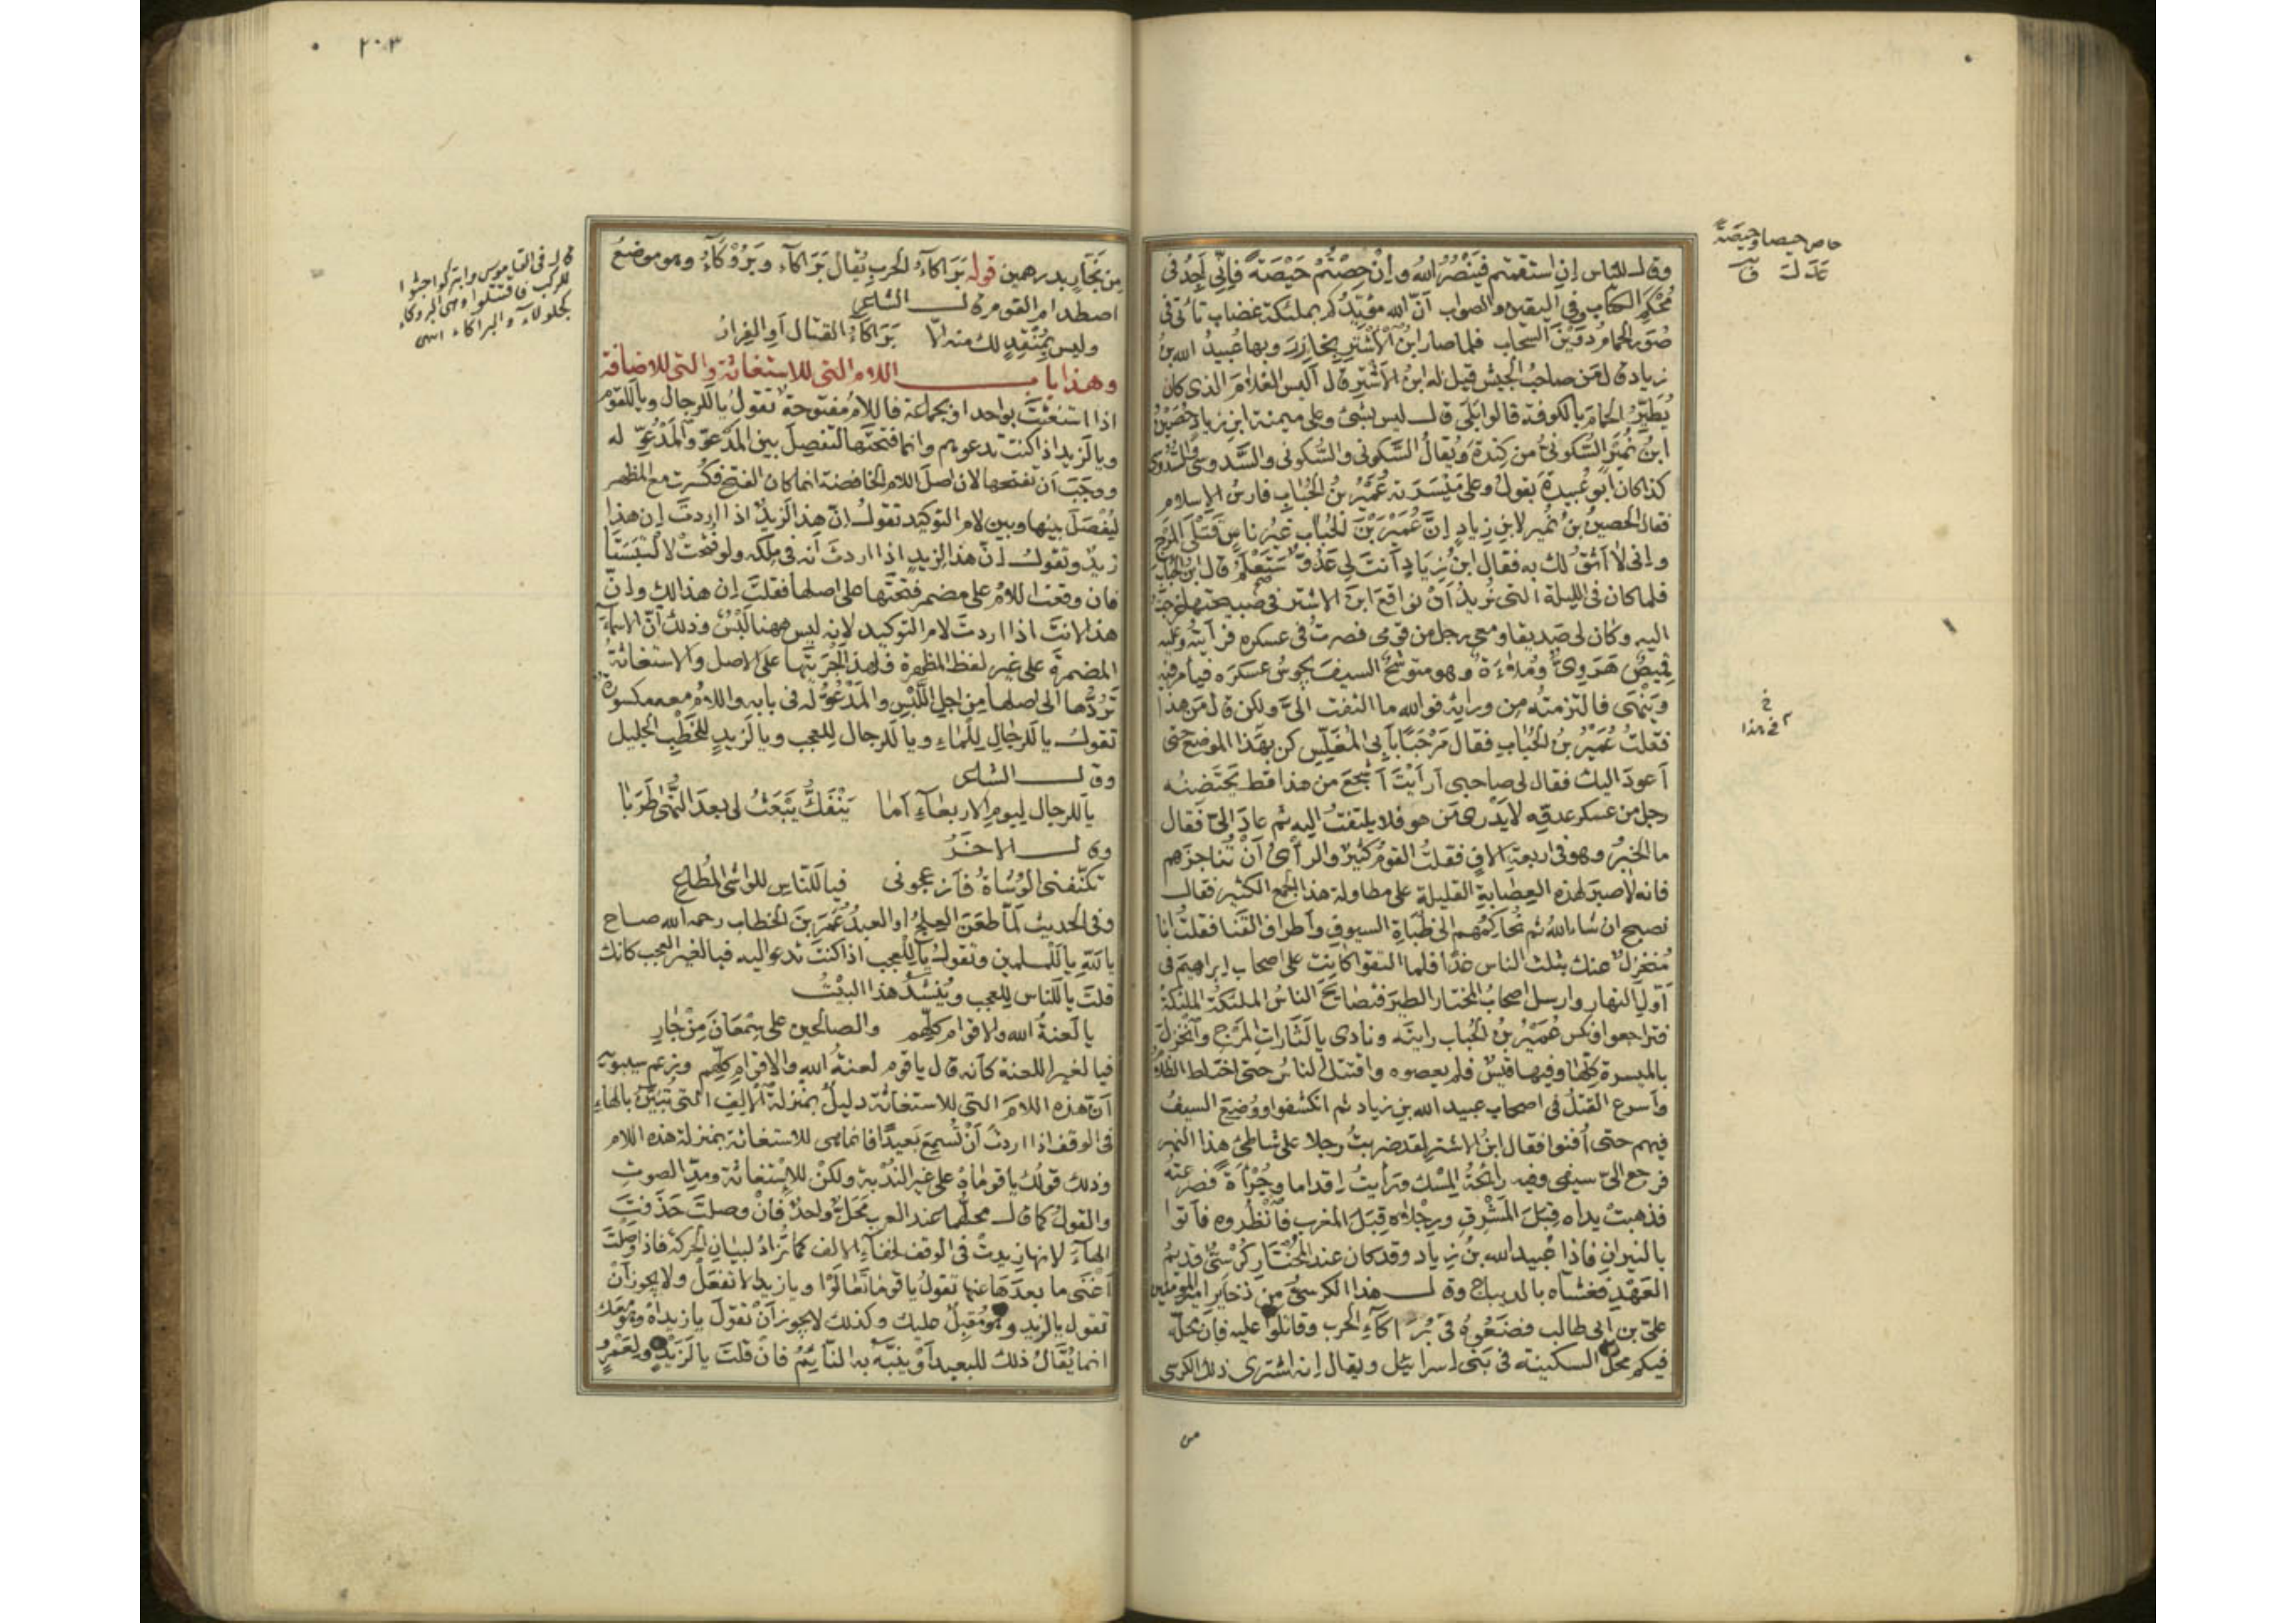 وقال للناس إن استقمتم فينصر الله وإن حِصْتُم حَيْصَةً فإني أجد في
مُحْكَمِ الكتاب وفي اليقين والصواب أنّ الله مؤيّدكم بملئكة غضاب تأتي في
صُوَر الحمام دُوَيْنَ السحاب فلما صار ابنُ الأشتر بخازِرَ وبها عبيدُ الله بنُ
زياد قال من صاحبُ الجيش قيل له ابنُ الأشتر قال أليس الغلامَ الذي كان
يُطَيِّرُ الحمامَ بالكوفة قالوا بَلَى قال ليس بشئ وعلى ميمنة ابن زياد حُصَيْنُ
ابنُ نُمَيْر السَّكونيُّ من كِنْدةَ ويُقالُ السَّكوني والسُّكوني والسَّدوسي والسُّدوسي
كذا كان أبو عُبيدةَ يقولُ وعلى مَيْسَرَته عُمَيْرُ بنُ الحُبابِ فارسُ الإسلام
فقال الحصينُ بنُ نُمَير لابن زيادٍ إنّ عُمَيْرَ بْنَ الحُبَاب غيرُ ناسٍ قَتْلَى المَرْجِ
وإني لا أثقُ لك به فقال ابنُ زيَادٍ أنت لي عَدُوّ سَتَعْلَمُ قال ابن الحباب
فلما كان في الليلة التي نُريدُ أنْ نواقعَ ابنَ الاشتر في صبيحتها خرجتُ
اليه وكان لي صَديقا ومعي رجل من قومي فصرتُ في عسكره فرأيتُه وعليه
قميصٌ هَرَويٌّ ومُلاءَةٌ وهو متوشِّحٌ السيفَ يجوسُ عسكرَه فيأمر فيه
ويَنْهَى فالتزمتُه مِن ورائِه فوالله ما التفت اليَّ ولكن قال مَن هذا
فقلتُ عُمَيْرُ بنُ الحُبَاب فقال مَرْحَبًا بأبي المُغَلِّسِ كن بهَذا الموضع حتى
أعودَ اليك فقال لي صاحبي أرَأيْتَ أشجعَ من هذا قط يَحْتَضنُه
رجل من عسكر عدوّه لا يَدْري مَن هو فلا يلتفتُ إليه ثم عادَ اليّ فقال
ما الخبرُ وهو في اربعة آلافٍ فقلتُ القومُ كثيرٌ والرأيُ أنْ تُناجزَهم
فانه لا صبرَ لهذه العِصَابةِ القليلةِ على مطاولة هذا الجمع الكثير فقال
نصبح ان شاء الله ثم نُحاكِمُهم الى ظُبَاةِ السيوفِ وأطرافِ القَنا فقلت أنا
مُنْخَزِلٌ عنك بثلث الناس غدًا فلما التقوا كانت على اصحاب ابراهيمَ في
أوّلِ النهار وارسل اصحابُ المختار الطيرَ فتصَايَحَ الناسُ الملئكةُ الملئكةُ
فتراجعوا ونكس عُمَيْرُ بنُ الحُباب رايتَه ونادى يا لَثَاراتِ المَرْجِ وانْخَزَلَ
بالميسرة كلِّها وفيها قيسٌ فلم يعصوه واقتتل الناسُ حتى اختلط الظلامُ
وأسرع القتلُ في اصحاب عبيد الله بن زياد ثم انكشفوا ووُضِعَ السيفُ
فيهم حتى أُفنوا فقال ابنُ الاشتر لقد ضربتُ رجلا على شاطئ هذا النهر
فرجع اليّ سيفي وفيه رائحةُ المِسْك ورأيتُ إقداما وجُرْأةً فصرعتُه
فذهبتْ يداه قِبَلَ المَشْرِقِ ورجْلاه قِبَلَ المغرب فانْظُروه فأتوا
بالنيرانِ فاذا عُبيد الله بنُ زياد وقد كان عند المُخْتَارِ كُرْسيٌّ قديمُ
العَهْدِ فغشّاه بالديباج وقال هذا الكرسيُّ مِن ذخائر امير المؤمنين
عليّ بن أبي طالب فضَعُوهُ في بَرَاكاءِ الحرب وقاتلوا عليه فإنّ محلّه
فيكم محلُّ السكينة في بني إسرائيل ويقال إنه اشترى ذلك الكرسي
من
حاص حيصا وحيصةً
عَدَلَ
خ
في هذا
٢٠٣
مِن نَجّارٍ بدرهمين قوله بَرَاكاءِ الحربِ يُقال بَرَاكاء وبَرُوْكاءُ وهو موضعُ
اصطدام القوم قال الشاعر
وليس بمُنْقِذٍ لك منه إلّا بَرَاكاءُ القتال أو الفِرارُ
وهذا باب اللام التي للاستغاثة والتي للاضافة
اذا استَغَثْتَ بواحد او بجماعة فاللامُ مفتوحة تقولُ يا لَلرجال ويا لَلقوم
ويا لَزيد اذا كنت تدعوهم وانما فتحتَها لتفصِلَ بين المَدْعوّ والمَدْعُوّ له
ووجَبَ أن تفتحها لان اصلَ اللام الخافضة انما كان الفتح فكُسرت مع المظهر
ليُفْصَلَ بينها وبين لام التوكيد تقولُ إنّ هذا لَزيدٌ اذا اردتَ إن هذا
زيدٌ وتقولُ إنّ هذا لِزيدٍ اذا اردتَ أنه في مِلكه ولو فُتحتْ لالْتَبَسَتَا
فإن وقعت اللامُ على مضمر فتحتَها على اصلها فقلتَ إن هذا لك وإنّ
هذا لأنتَ اذا اردتَ لامَ التوكيد لانه ليس ههنا لَبْسٌ وذلك أنّ الاسماءَ
المضمرةَ على غير لفظ المظهرة فلهذا أجْرَيْتَها على الاصل والاستغاثةُ
تَرُدُّها الى اصلها مِن اجل اللَّبْسِ والمَدْعُوُّ له في بابه واللامُ معه مكسورةٌ
تقولُ يا لَلرجالِ لِلْماءِ ويا لَلرجال لِلعجب ويا لَزيدٍ للخَطْبِ الجليل
وقال الشاعر
يا لَلرجال ليومِ الاربعاءِ أمَا يَنْفَكُّ يَبْعَثُ لي بعدَ النُّهَى طَرَبا
وقال الآخَرُ
تَكنّفني الوُشاةُ فأزعجوني فيا لَلناسِ لِلواشي المُطاعِ
وفي الحديث لَمّا طعَنَ العِلجُ او العبدُ عُمَرَ بنَ الخطاب رحمه الله صاح
يا لَلّه يا لَلمسلمين وتقولُ يا لِلعجب اذا كنتَ تدعو اليه فيا لغير العجب كانك
قلتَ يا لَلناس لِلعجب ويُنشَدُ هذا البيْتُ
يا لَعنةُ الله والاقوام كلِّهم والصالحين على سِمْعَانَ مِنْ جارِ
فيا لغير اللعنة كأنه قال يا قوم لعنةُ اللهِ والاقوامِ كلِّهم ويزعم سيبويه
أنّ هذه اللامَ التي للاستغاثة دليلٌ بمنزلة الألِفِ التي تُبَيَّنُ بالهاءِ
في الوقف اذا اردتَ أنْ تُسمِعَ بَعيدًا فانما هي للاستغاثة بمنزلة هذه اللام
وذلك قولُك يا قوماهْ على غير النُّدْبة ولكنْ للإسْتغاثة ومدِّ الصوتِ
والقولُ كما قال محلُّهما عند العرب مَحَلٌّ واحدٌ فإنْ وصلتَ حَذَفتَ
الهاءَ لانها زيدتْ في الوقف لخفاءِ الالف كما تُزادُ لبيانِ الحركة فاذا وصَلْتَ
أغْنَى ما بعدَها عنها تقولُ يا قومَا تعَالَوْا ويا زيدا لا تفعَلْ ولا يجوز أنْ
تقول يا لَزيد وهو مُقبِلٌ عليك وكذلك لا يجوز أنْ تقولَ يا زيداهْ وهو معك
انما يُقَالُ ذلك للبعيد أو يُنَبَّهُ به النائِمُ فانْ قلتَ يا لَزَيْدٍ ولِعَمْرٍو
قال في القاموس وابتركوا جثوا
للركب فاقتتلوا وهي البروكاء
كجلولاء والبراكاء انتهى